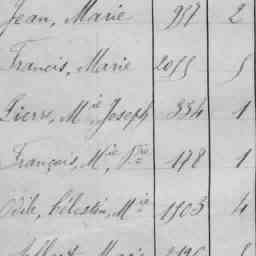 Jean, Marie 957 2
Francis, Marie 2055 5
Pierre, M^ie Joseph 334 1
François, M^ie, 178 1
Odile, Célestin, M^ie 1503 4
Albert, Marie